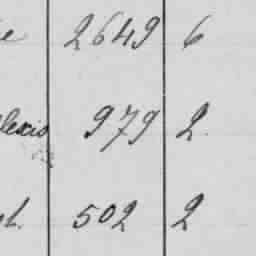 2649 6
lexis 979 2
502 2